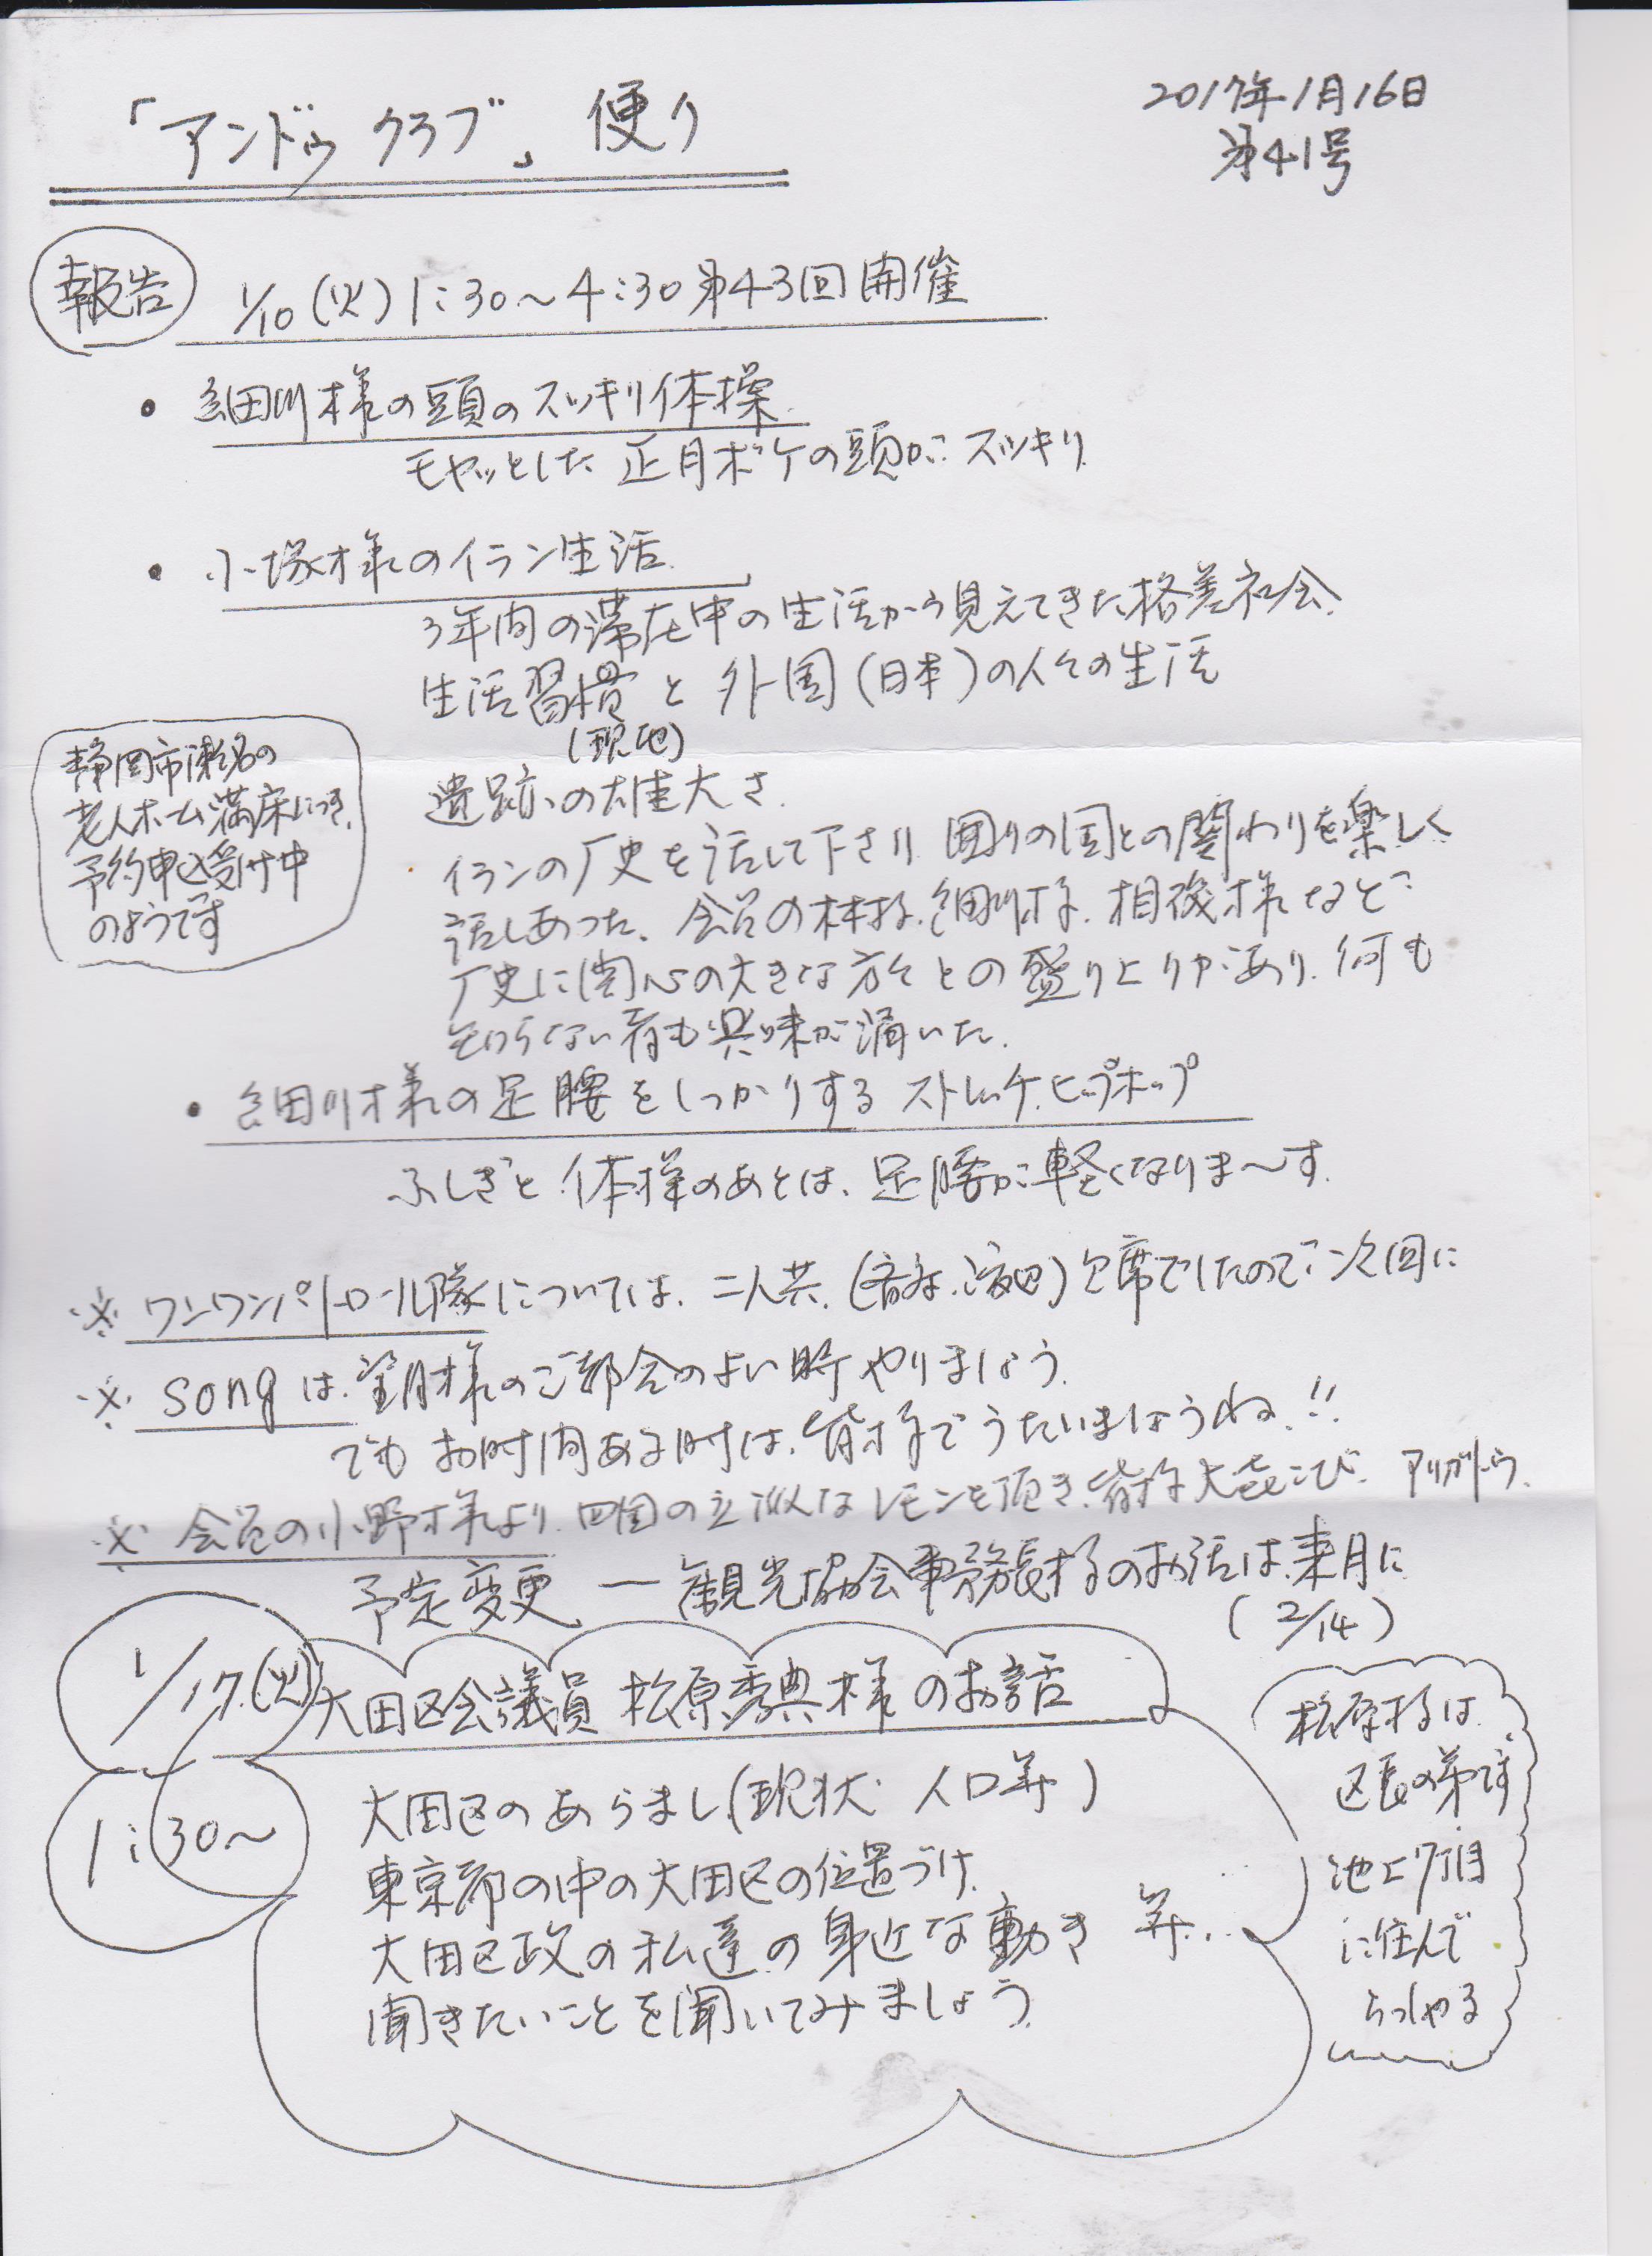 「アンドゥクラブ」便り
2017年1月16日
第41号
報告
1/10(火)1:30〜4:30第43回開催
・細川様の頭のスッキリ体操
モヤッとした正月ボケの頭がスッキリ
・小塚様のイラン生活
3年間の滞在中の生活から見えてきた格差社会.
生活習慣と外国(日本)の人々の生活
(現地)
遺跡の雄大さ.
イランの歴史を話して下さり囲りの国との関わりを楽しく
話しあった.会員の林様.細川様.相後様など
歴史に関心の大きな方々との盛り上りがあり.何も
知らない者も興味が涌いた.
静岡市瀬名の
老人ホーム満床につき.
予約申込受付中
のようです
・細川様の足腰をしっかりするストレッチ.ヒップホップ
ふしぎと体操のあとは、足腰が軽くなりま〜す.
※ワンワンパトロール隊については.二人共.(渡辺)欠席でしたので次回に
※songは.望月様のご都合のよい時やりましょう.
でもお時間ある時は.皆様でうたいましょうね.!!
※会員の小野様より.四国の立派なレモンを頂き.皆様大喜こび.アリガトウ.
予定変更ー観光協会事務長様のお話は.来月に
(2/14)
1/17.(火)
1:30〜
大田区会議員 松原秀典様のお話
大田区のあらまし(現状.人口等)
東京都の中の大田区の位置づけ.
大田区政の私達の身近な動き 等...
聞きたいことを聞いてみましょう.
松原様は
区長の弟です
池上7丁目
に住んで
らっしゃる